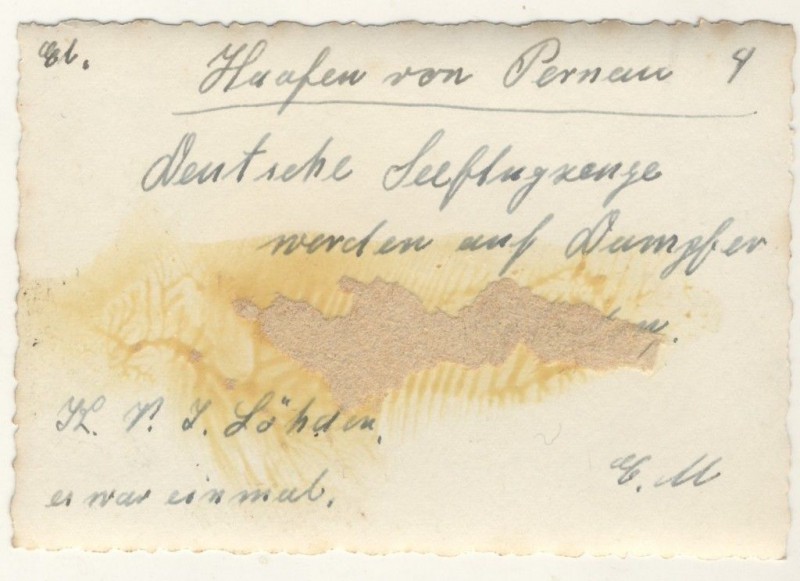 El. Haafen von Pernau 9
Deutsche Seeflugzeuge
werden auf Dampfer
K. V. I. Löhden.
E. M
es war einmal.